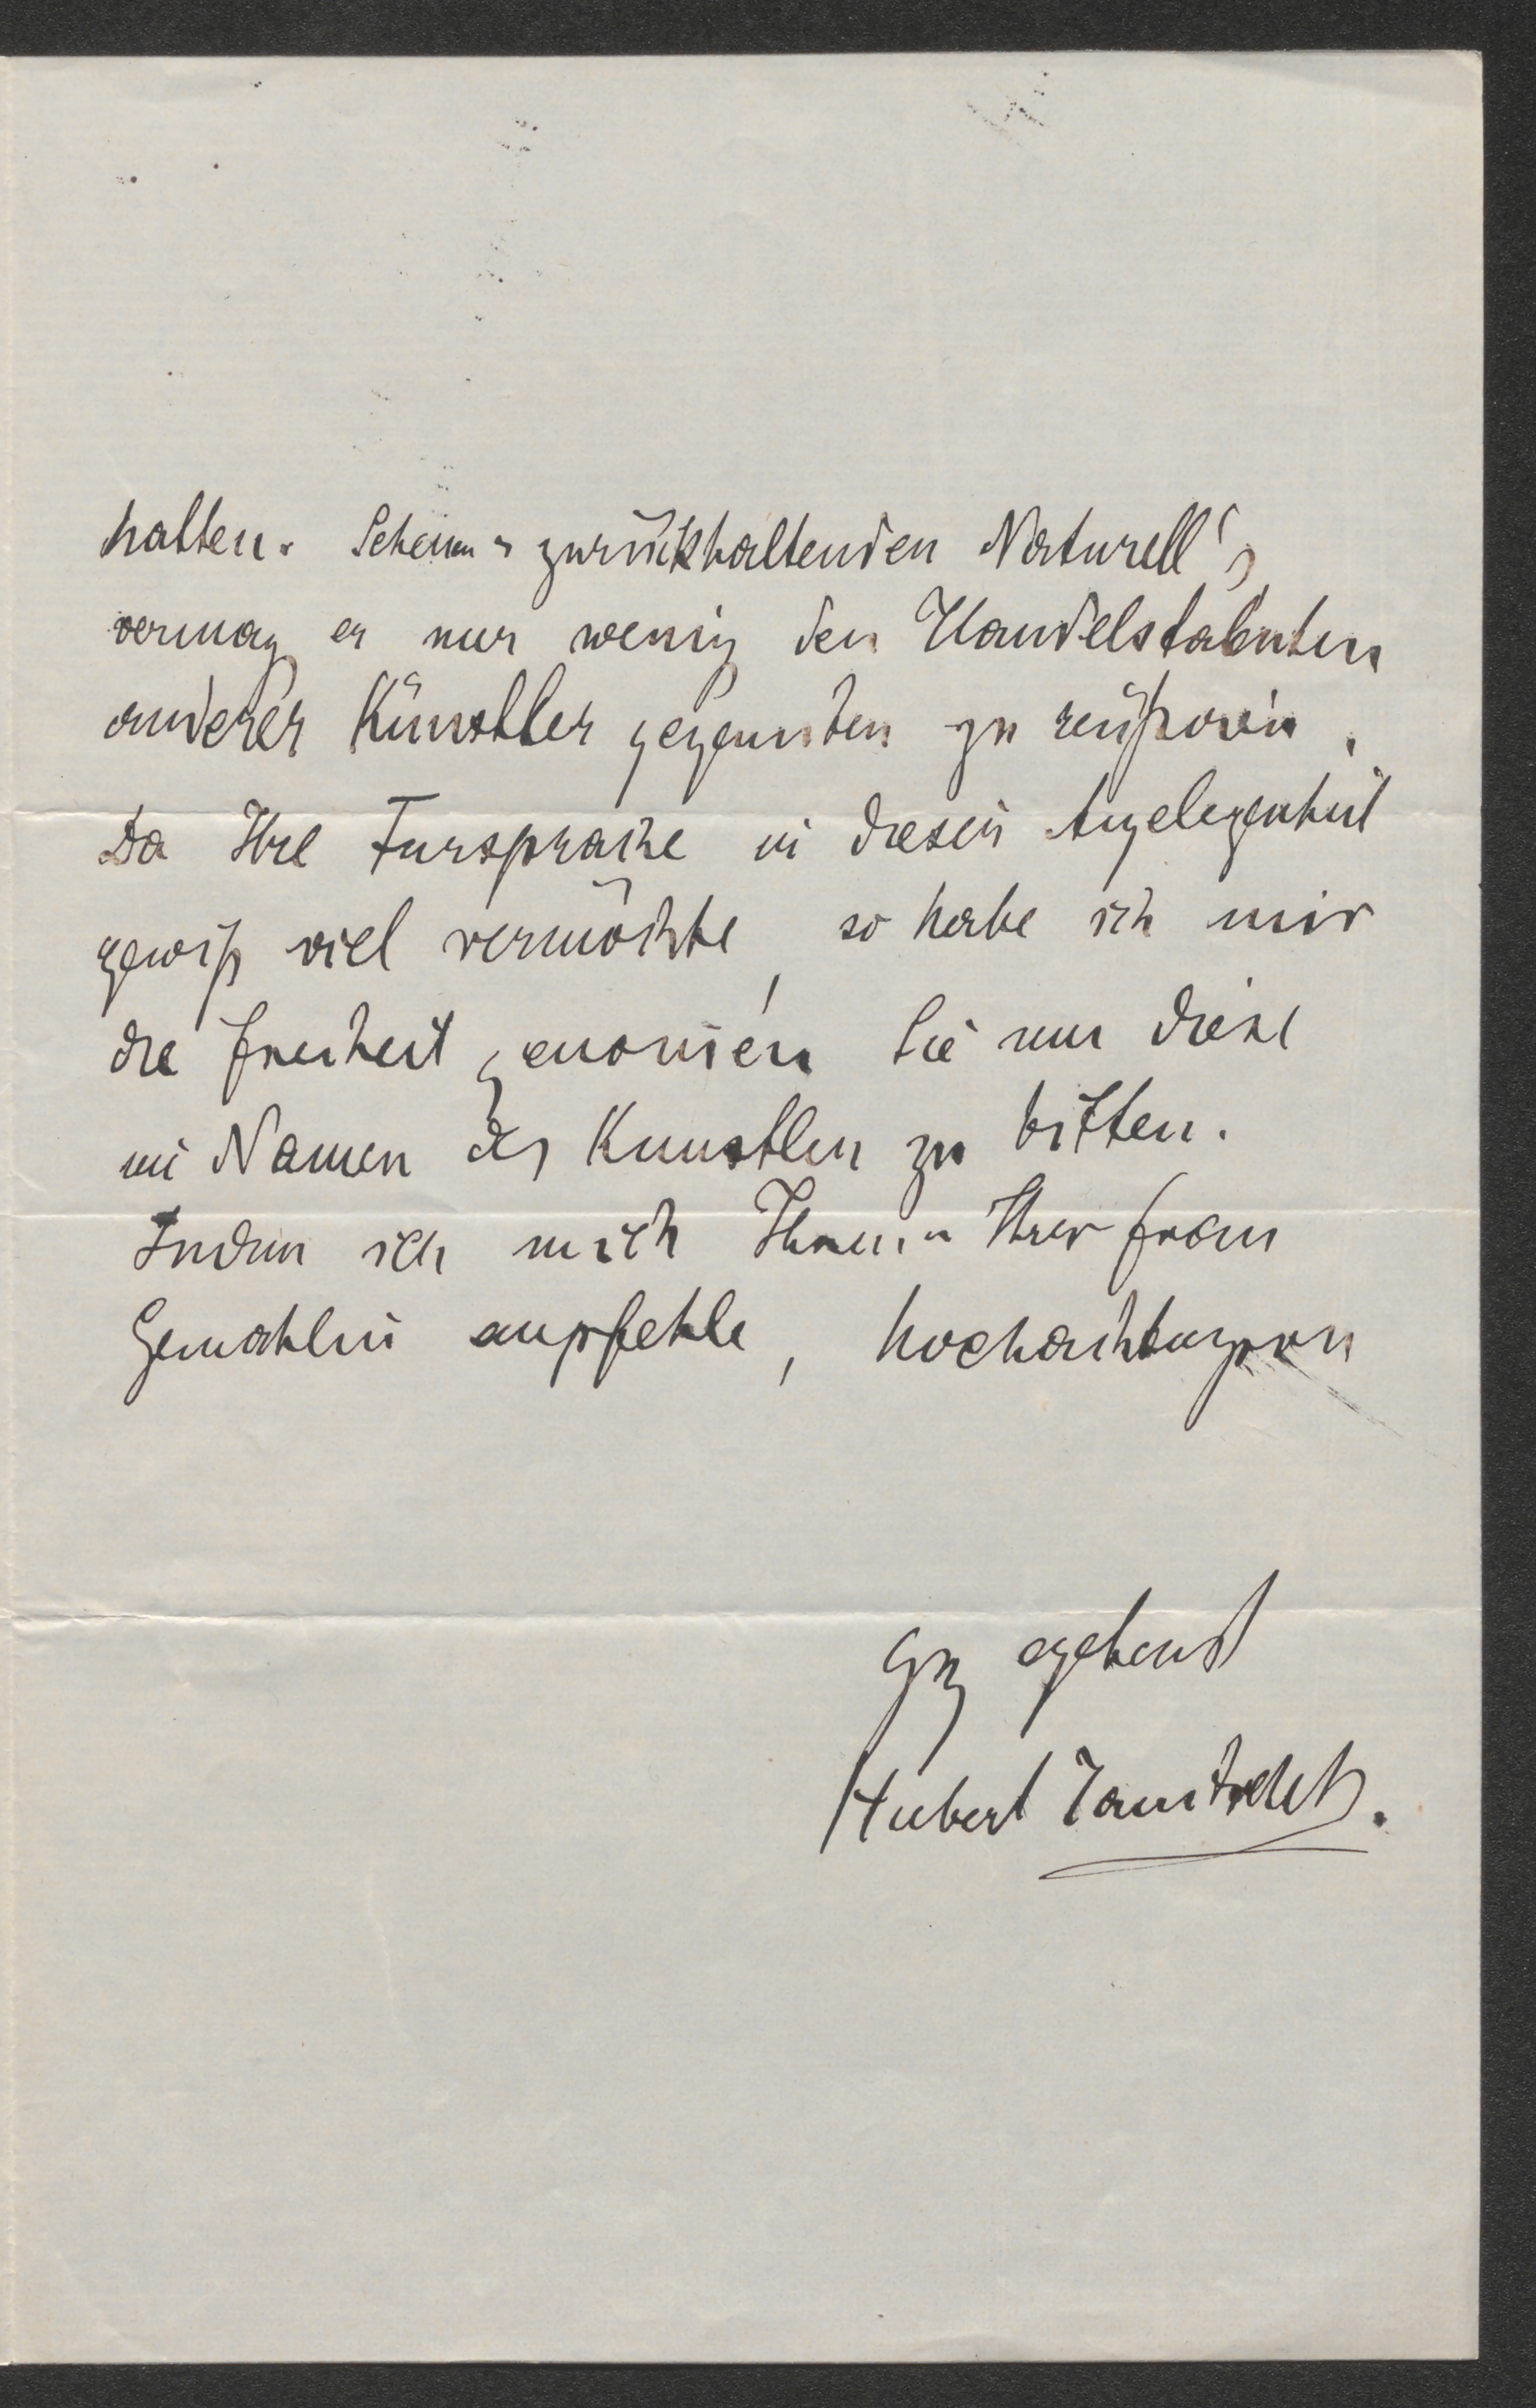 halten. Scheuen u zurückhaltenden Naturell's
vermag er nur wenig den Handelstalenten
anderer Künstler gegenüber zu
Da Ihre Fursprache in dieser Angelegenheit
gewiß viel vermöchte, so habe ich mir
die Freiheit genom̄en Sie um diese
im Namen des Kunstlers zu bitten.
Indem ich mich Ihnen u Ihrer Frau
Gemahlin empfehle, hochachtungsvoll
Gz ergebenst
Hubert Janitschek.